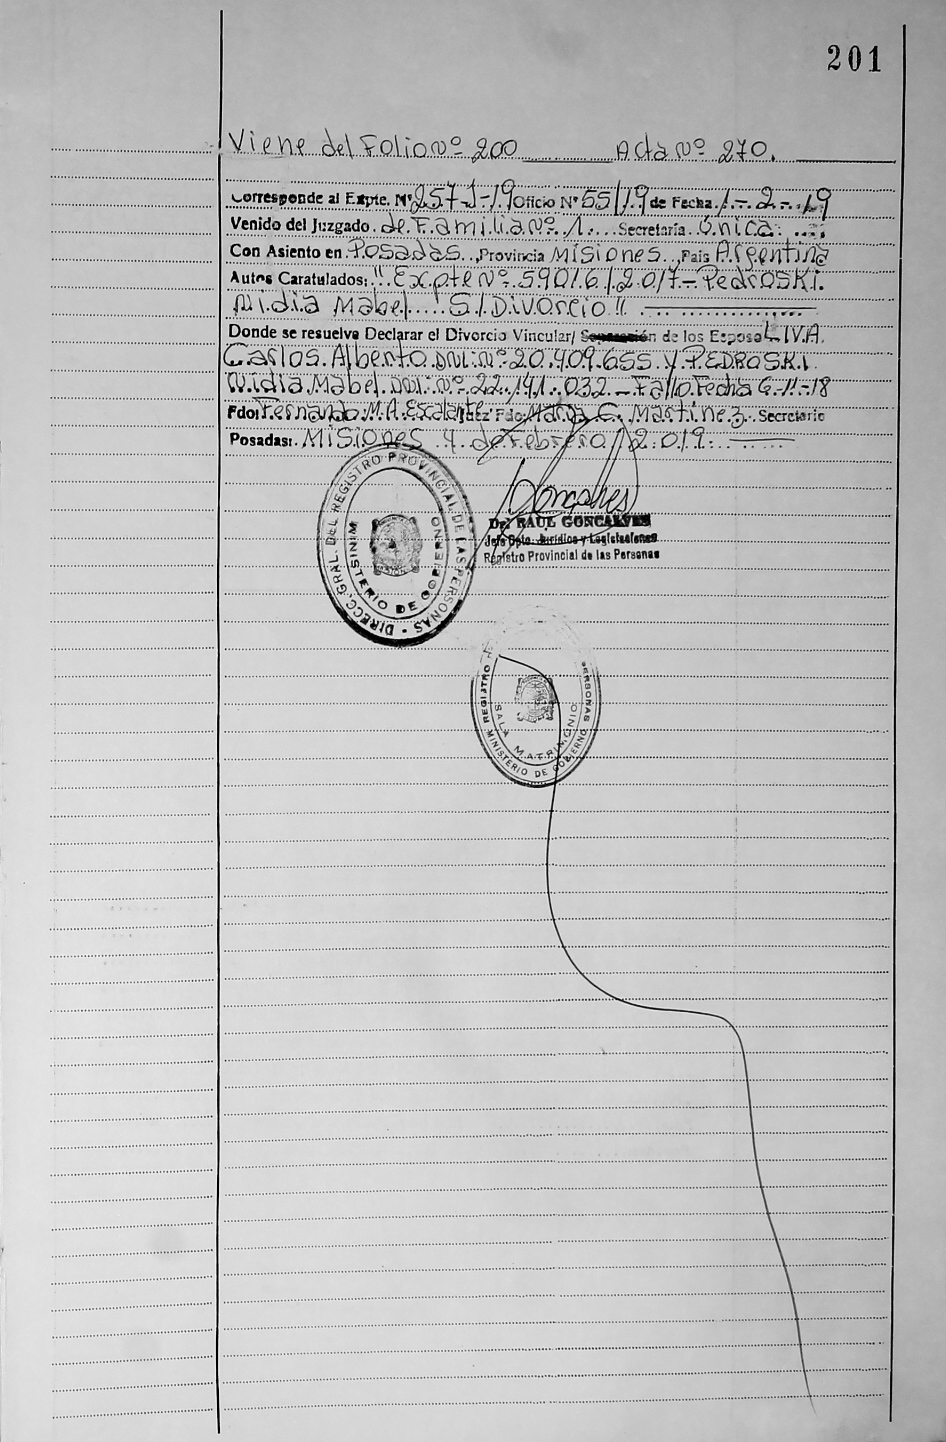 201
Viene del Folio Nº 200 Acta Nº 270.
Corresponde al Expte. Nº 257-J-19 Oficio Nº 55/19 de Fecha 1-2-19
Venido del Juzgado de Familia Nº 1 Secretaria Única
Con Asiento en Posadas, Provincia Misiones, Pais Argentina
Autos Caratulados: "Expte Nº 59016/2017- PedrosKi
Nidia Mabel S/Divorcio"
Donde se resuelve Declarar el Divorcio Vincular/ Separación de los Esposos LIVA
Carlos Alberto DNI Nº 20.409.655 y PEDROSKI
Nidia Mabel DNI Nº 22.141.032 - Fallo Fecha 6-11-18
Fdo: Fernando M.A. Escalante Juez Fdo: Maria G. Martinez Secretario
Posadas: Misiones 4 de Febrero 2019
Goncalves
Dr. RAUL GONCALVES
Jefe Dpto. Jurídico y Legislaciones
Registro Provincial de las Personas
DIRECC. GRAL. DEL REGISTRO PROVINCIAL DE LAS PERSONAS
MINISTERIO DE GOBIERNO
REGISTRO PERSONAS
SALA MATRIMONIO
MINISTERIO DE GOBIERNO